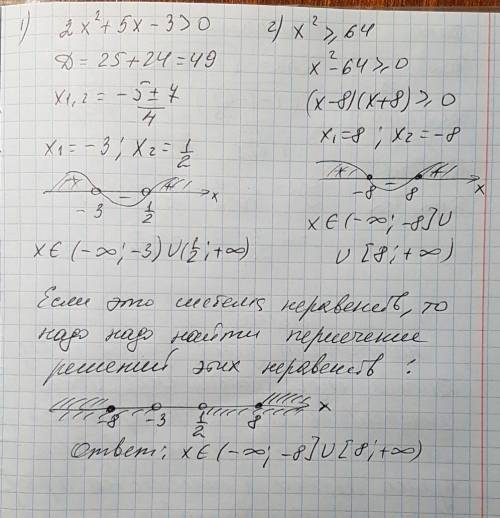 1) 2x²+5x-3>0
D=25+24=49
x1,2 = -5±7/4
x1=-3; x2=1/2
+ - + x
-3 1/2
x∈(-∞;-3)∪(1/2;+∞)
2) x²≥64
x²-64≥0
(x-8)(x+8)≥0
x1=8; x2=-8
+ - + x
-8 8
x∈(-∞;-8]∪
∪[8;+∞)
Если это система неравенств, то
надо надо найти пересечение
решений этих неравенств:
-8 -3 1/2 8 x
Ответ: x∈(-∞;-8]∪[8;+∞)